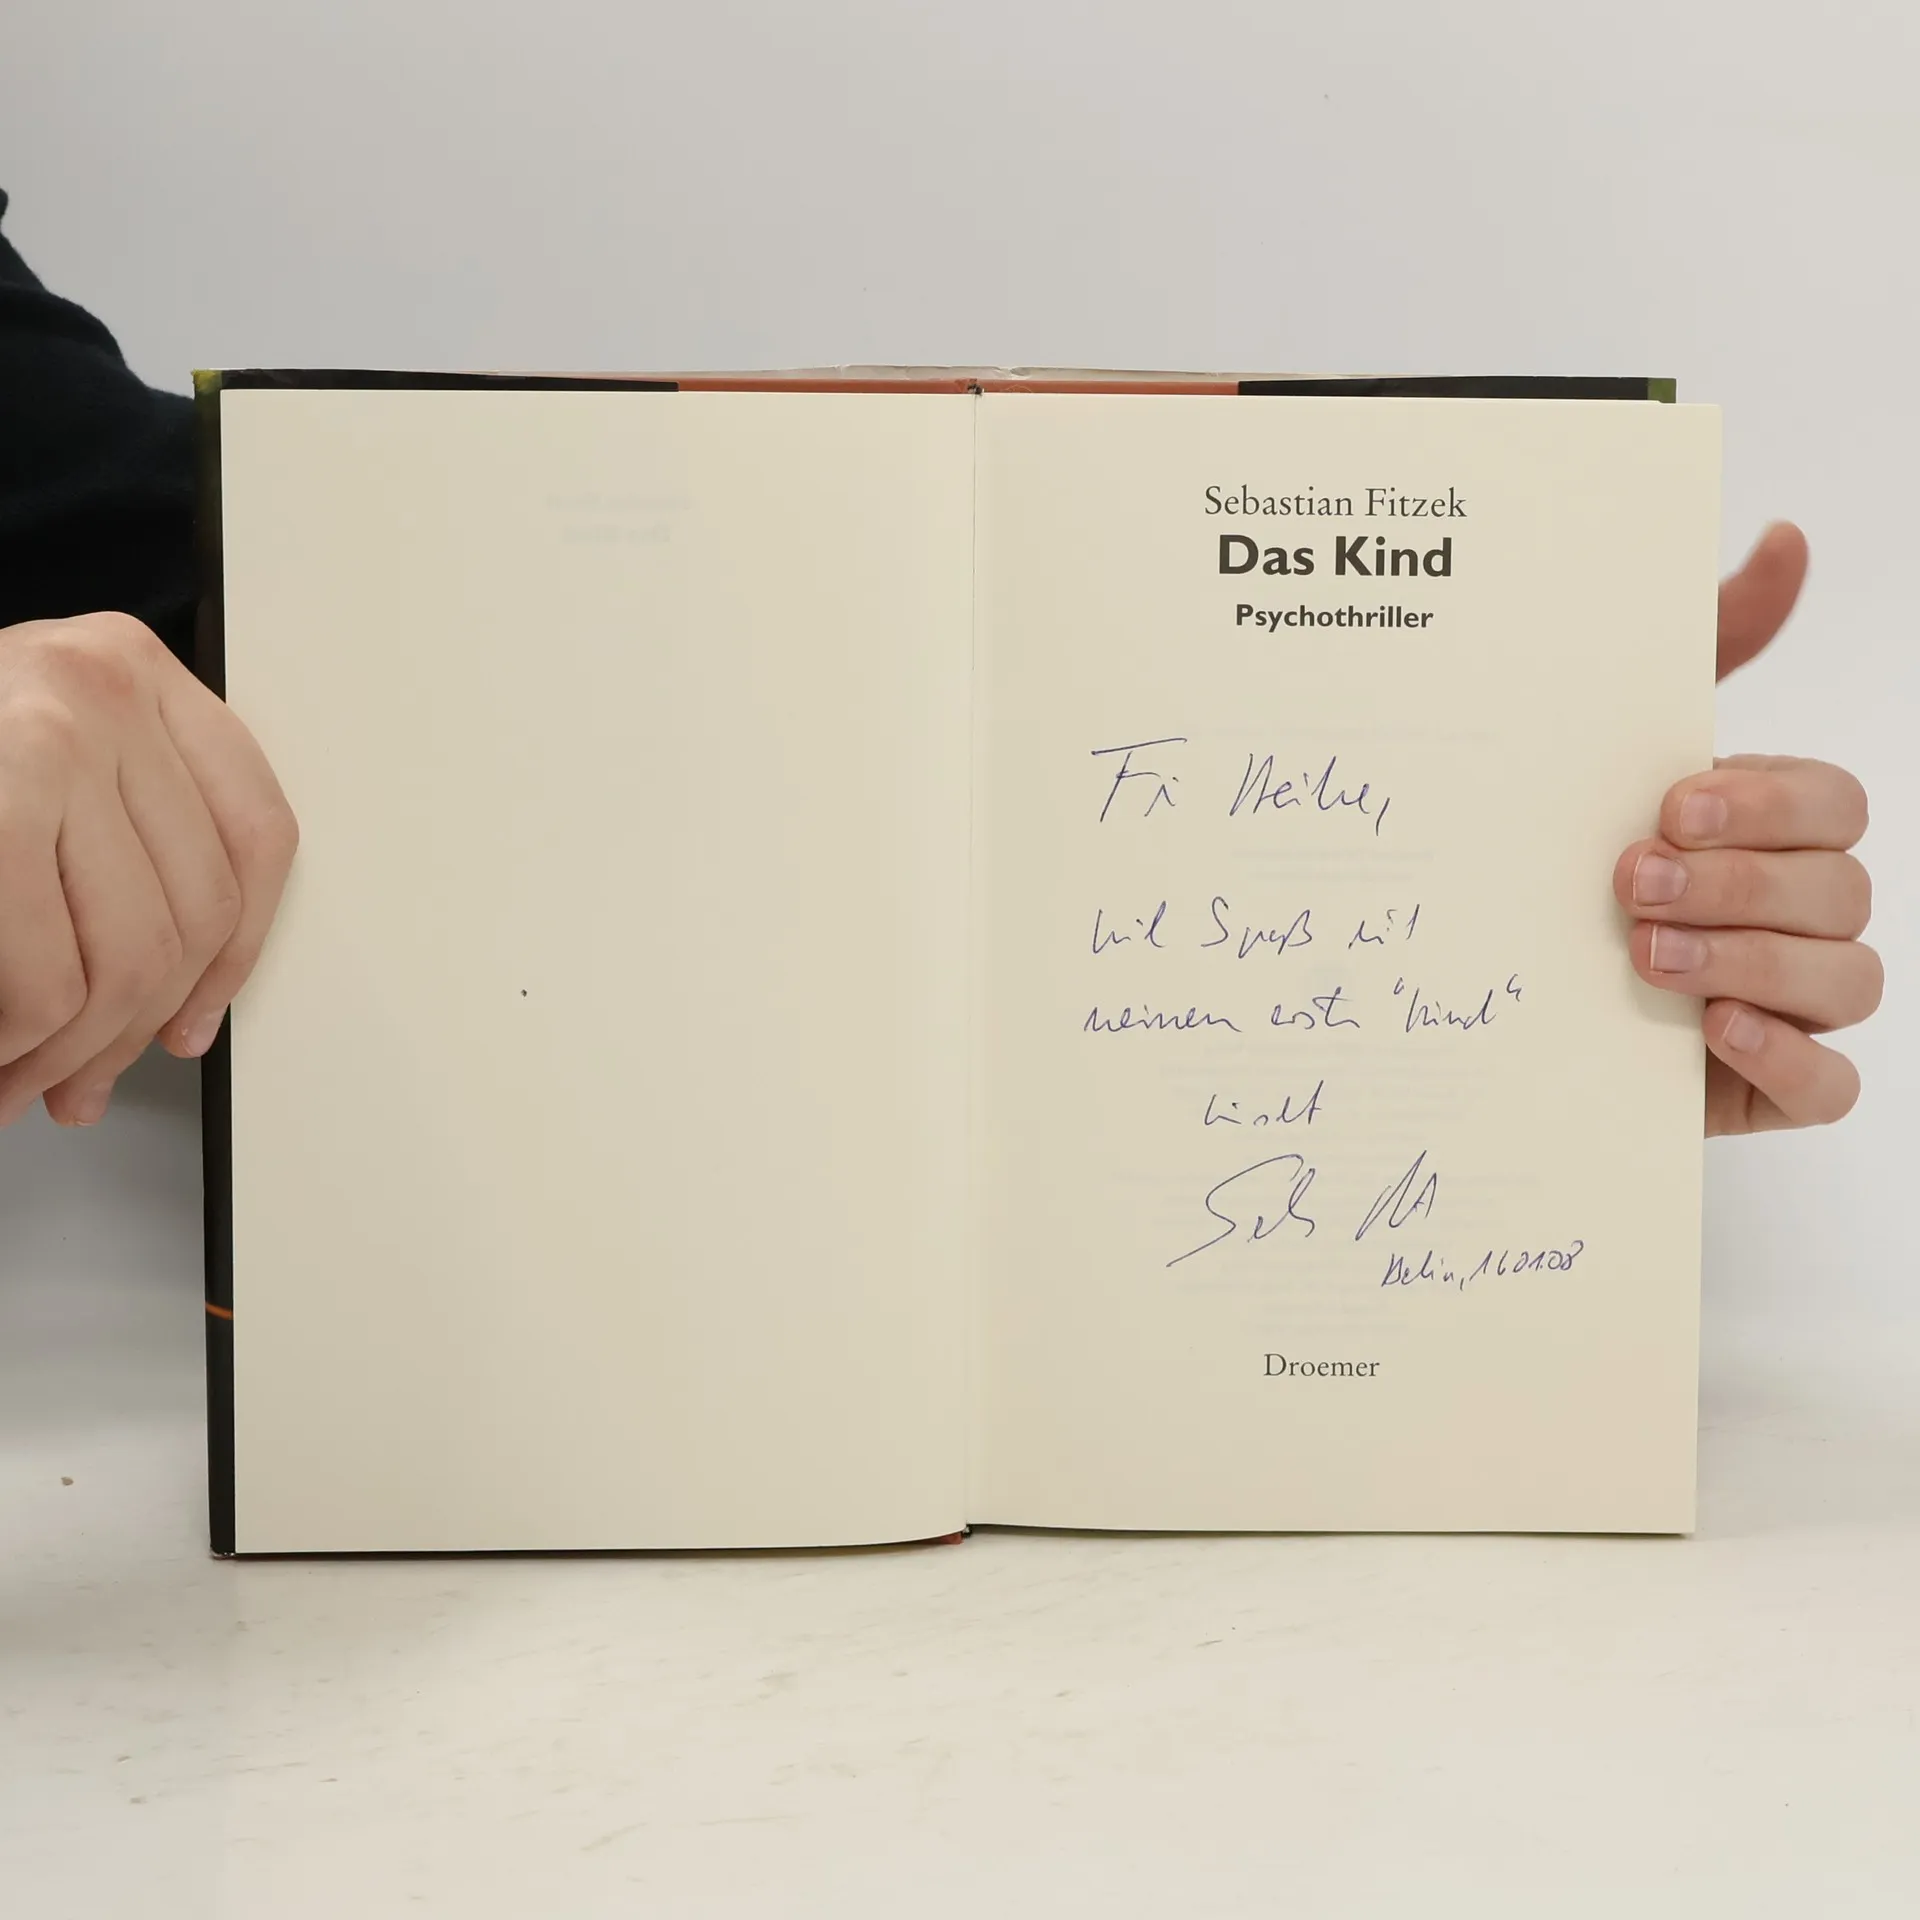 Sebastian Fitzek
Das Kind
Psychothriller
Für Heike,
viel Spaß mit
meinem ersten "Kind"
Berlin, 160108
Droemer